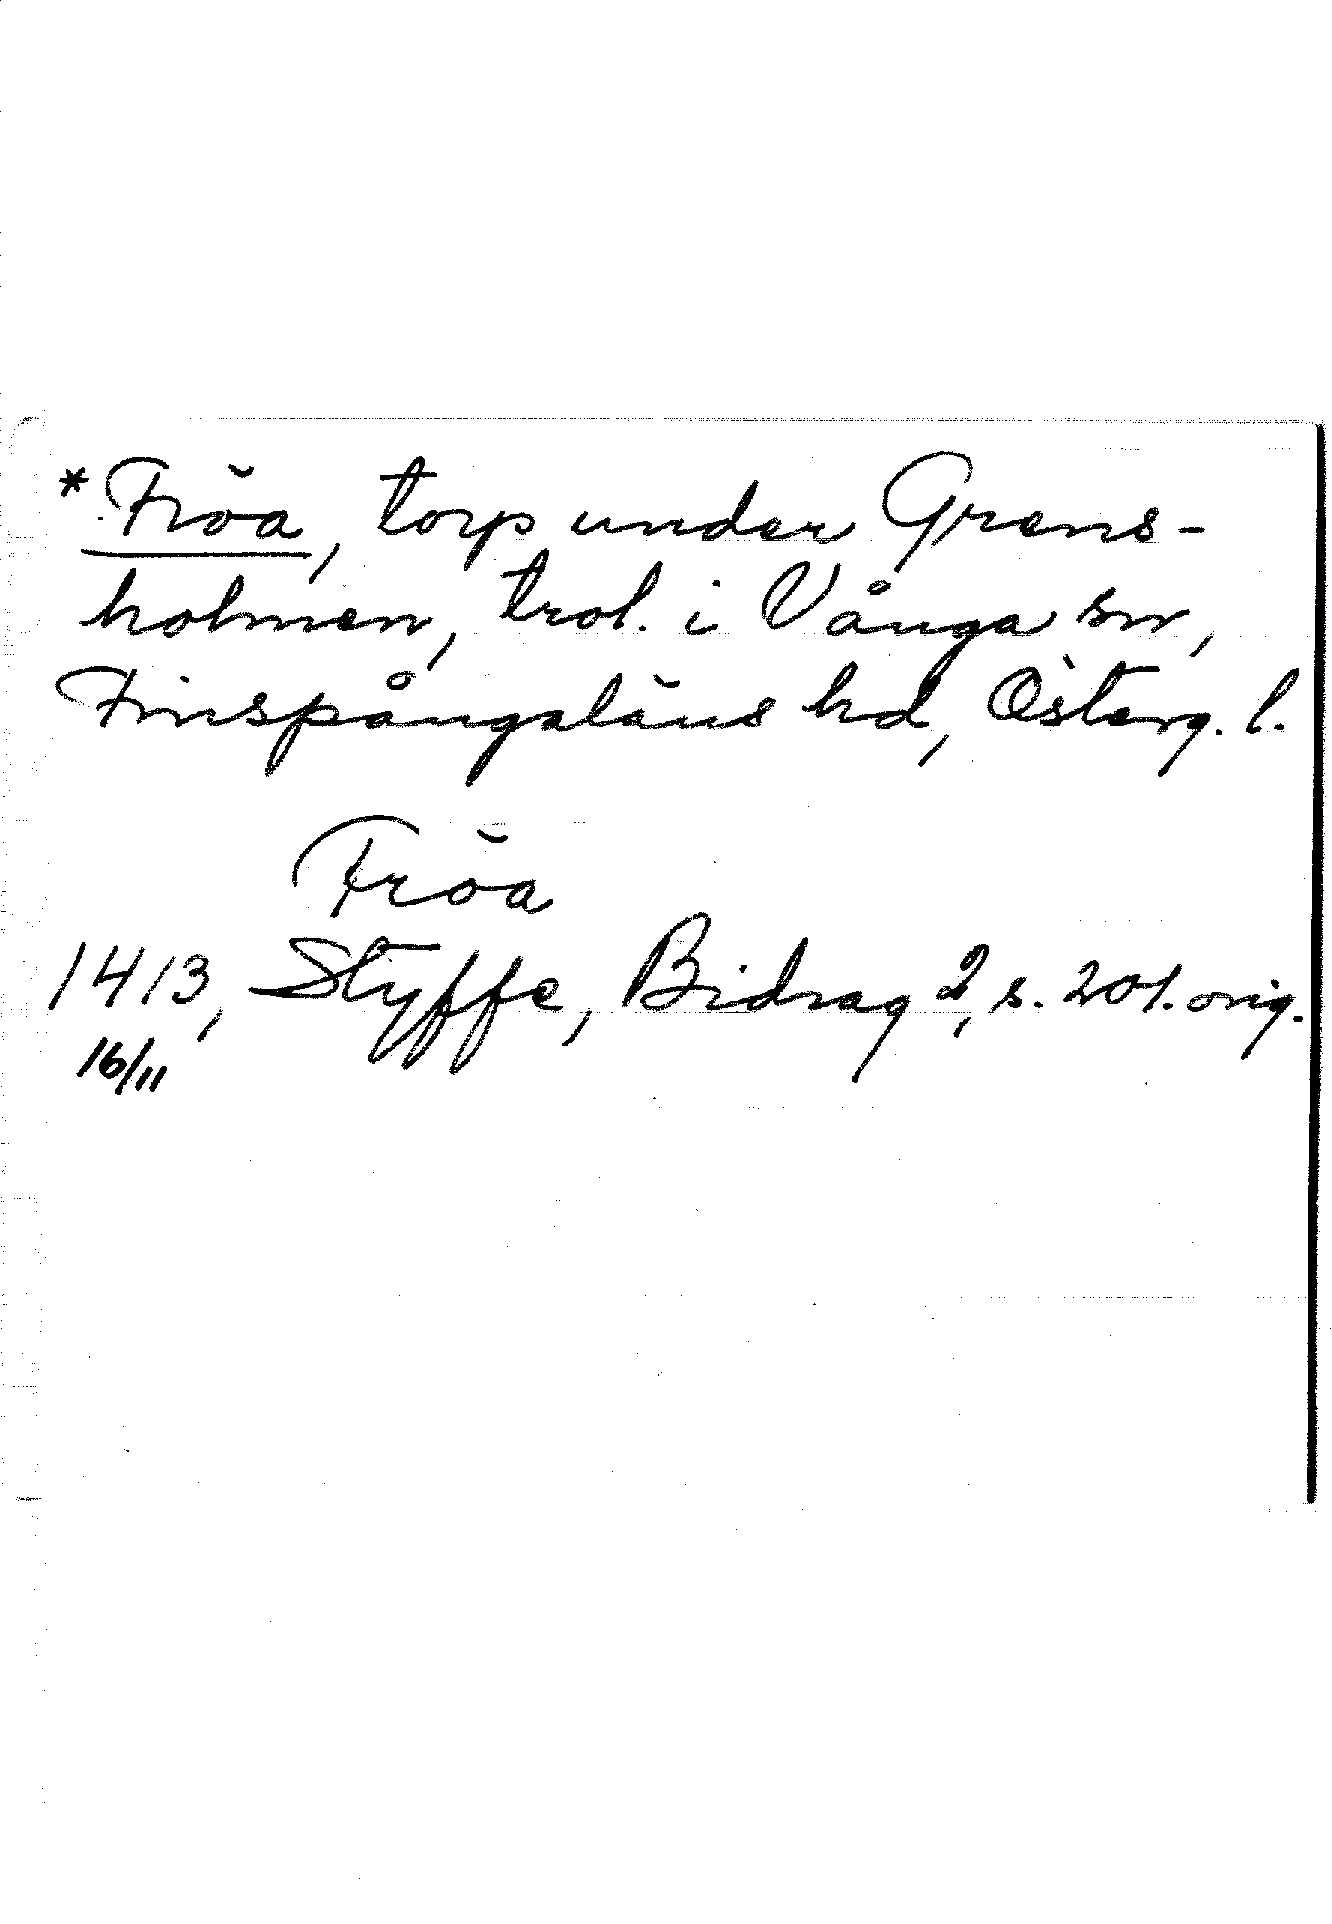 *Fröa, torp under Grens-
holmen, trol. i Vånga sn,
Finspångaläns hd, Österg. l.
Fröa
1413, Styffe, Bidrag 2, s. 201. orig.
16/11